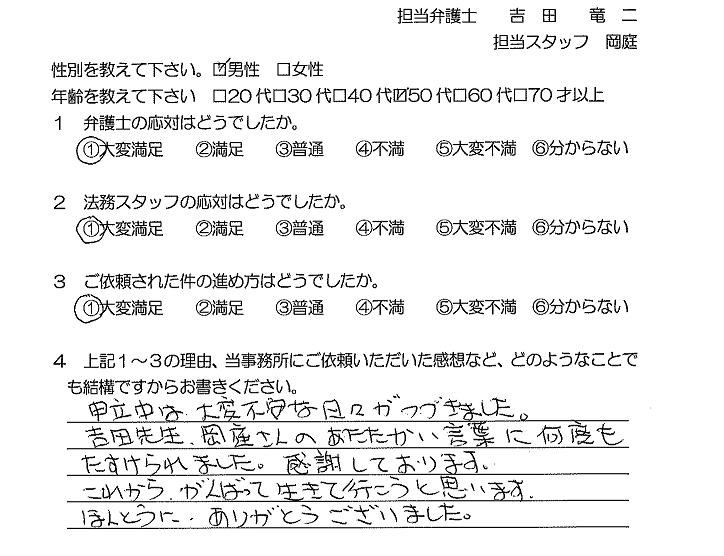 担当弁護士　吉　田　竜　二
担当スタッフ　岡庭
性別を教えて下さい。☑男性　□女性
年齢を教えて下さい　□20代□30代□40代☑50代□60代□70才以上
１　弁護士の応対はどうでしたか。
①大変満足　②満足　③普通　④不満　⑤大変不満　⑥分からない
２　法務スタッフの応対はどうでしたか。
①大変満足　②満足　③普通　④不満　⑤大変不満　⑥分からない
３　ご依頼された件の進め方はどうでしたか。
①大変満足　②満足　③普通　④不満　⑤大変不満　⑥分からない
４　上記１～３の理由、当事務所にご依頼いただいた感想など、どのようなことで
も結構ですからお書きください。
申立中は、大変不安な日々がつづきました。
吉田先生、岡庭さんのあたたかい言葉に何度も
たすけられました。感謝しております。
これから、がんばって生きて行こうと思います。
ほんとうに、ありがとうございました。